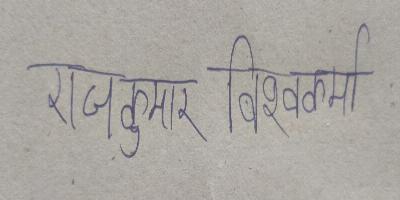 राजकुमार विश्वकर्मा